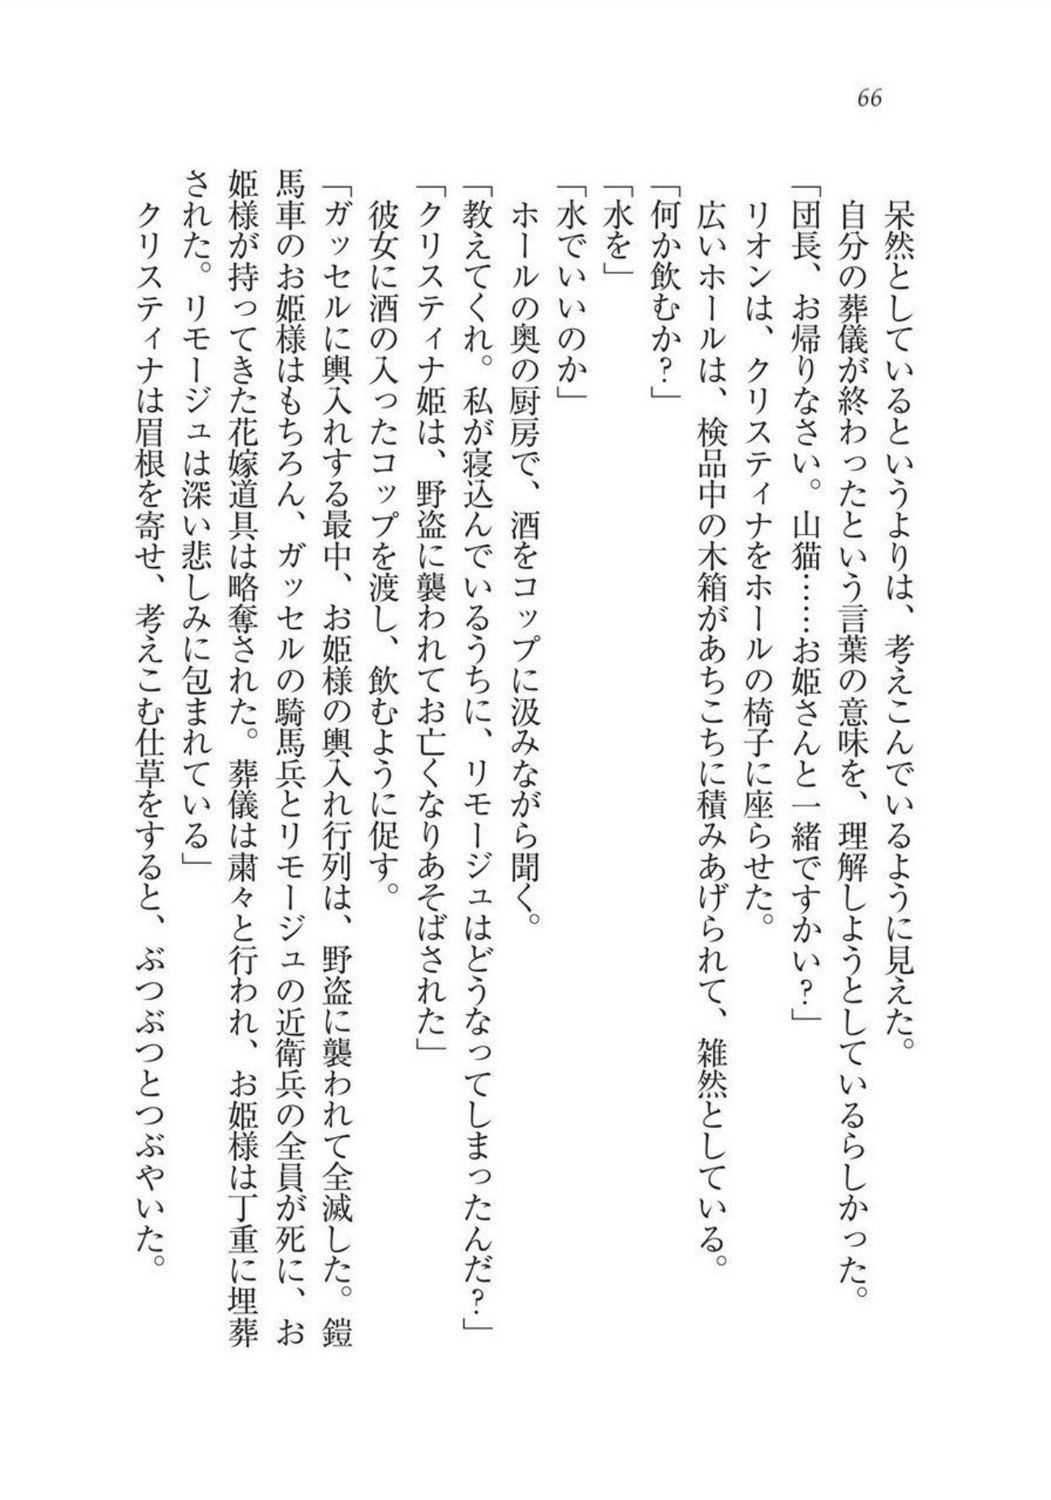 66
呆然としているというよりは、考えこんでいるように見えた。
自分の葬儀が終わったという言葉の意味を、理解しようとしているらしかった。
「団長、お帰りなさい。山猫……お姫さんと一緒ですかい？」
リオンは、クリスティナをホールの椅子に座らせた。
広いホールは、検品中の木箱があちこちに積みあげられて、雑然としている。
「何か飲むか？」
「水を」
「水でいいのか」
ホールの奥の厨房で、酒をコップに汲みながら聞く。
「教えてくれ。私が寝込んでいるうちに、リモージュはどうなってしまったんだ？」
「クリスティナ姫は、野盗に襲われてお亡くなりあそばされた」
彼女に酒の入ったコップを渡し、飲むように促す。
「ガッセルに輿入れする最中、お姫様の輿入れ行列は、野盗に襲われて全滅した。鎧
馬車のお姫様はもちろん、ガッセルの騎馬兵とリモージュの近衛兵の全員が死に、お
姫様が持ってきた花嫁道具は略奪された。葬儀は粛々と行われ、お姫様は丁重に埋葬
された。リモージュは深い悲しみに包まれている」
クリスティナは眉根を寄せ、考えこむ仕草をすると、ぶつぶつとつぶやいた。